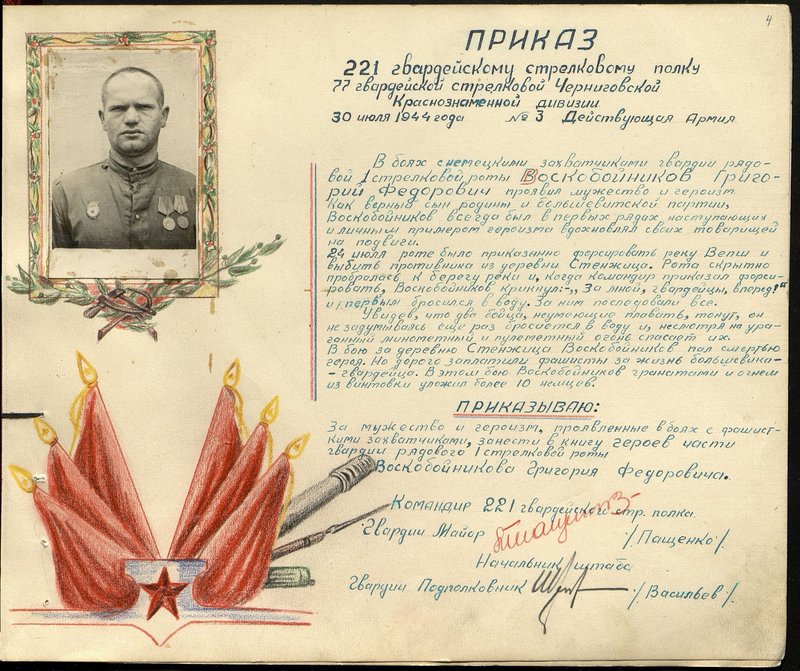 4
ПРИКАЗ
221 гвардейскому стрелковому полку
77 гвардейской стрелковой Черниговской
Краснознаменной дивизии
30 июля 1944 года № 3 Действующая Армия
В боях с немецкими захватчиками гвардии рядо-
вой 1 стрелковой роты Воскобойников Григо-
рий Федорович проявил мужество и героизм.
Как верный сын родины и большевитской партии,
Воскобойников всегда был в первых рядах наступающих
и личным примером героизма вдохновлял своих товарищей
на подвиги.
24 июля роте было приказанно форсировать реку Вепш и
выбить противника из деревни Стенжица. Рота скрытно
пробралась к берегу реки и, когда командир приказал форси-
ровать, Воскобойников крикнул:-„За мной, гвардейцы, вперед!"
и первым бросился в воду. За ним последовали все.
Увидев, что два бойца, неумеющие плавать, тонут, он
не задумываясь еще раз бросается в воду и, несмотря на ура-
ганный минометный и пулеметный огонь спасает их.
В бою за деревню Стенжица Воскобойников пал смертью
героя. Но дорого заплатили фашисты за жизнь большевика-
-гвардейца. В этом бою Воскобойников гранатами и огнем
из винтовки уложил более 10 немцев.
ПРИКАЗЫВАЮ:
За мужество и героизм, проявленные в боях с фашист-
скими захватчиками, занести в книгу героев части
гвардии рядового 1 стрелковой роты
Воскобойникова Григория Федоровича.
Командир 221 гвардейского стр. полка
Гвардии Майор /Пащенко/.
Начальник штаба
Гвардии Подполковник /Васильев/.